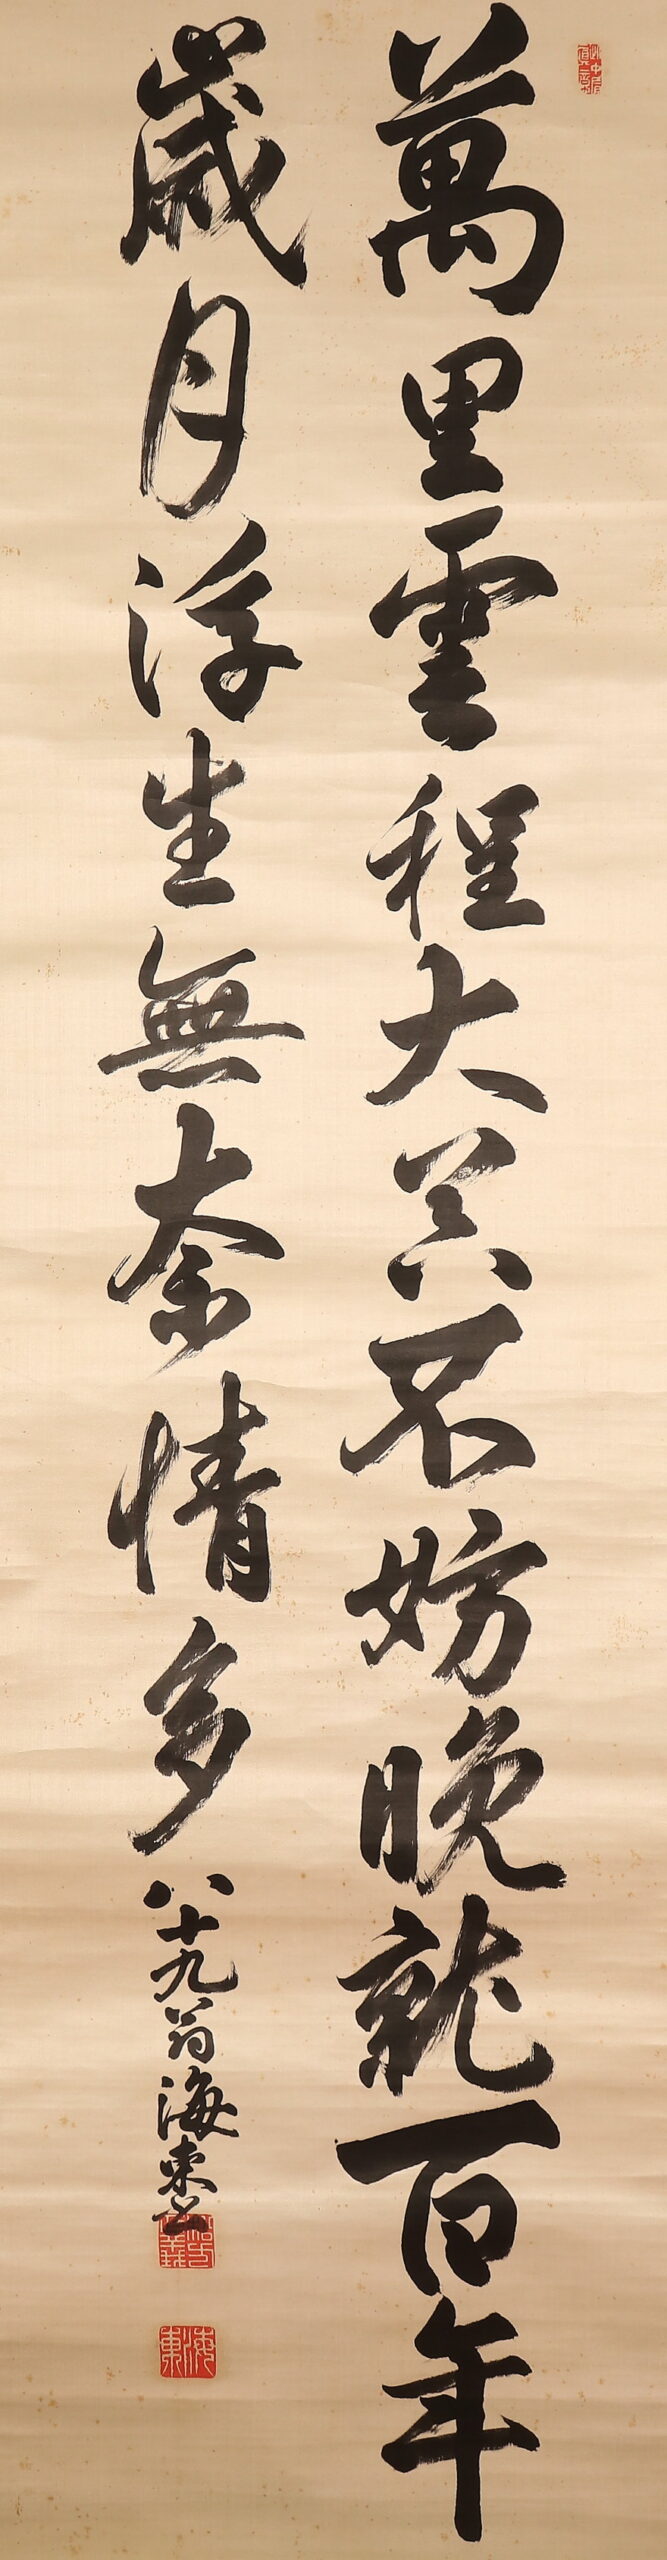 萬里雲程大器不妨晚就百年
歲月浮生無奈情多
八十九翁海東書
海東